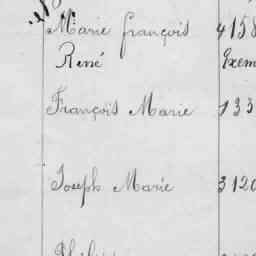 Marie françois 4158
René Exem
François Marie 133
Joseph Marie 3120